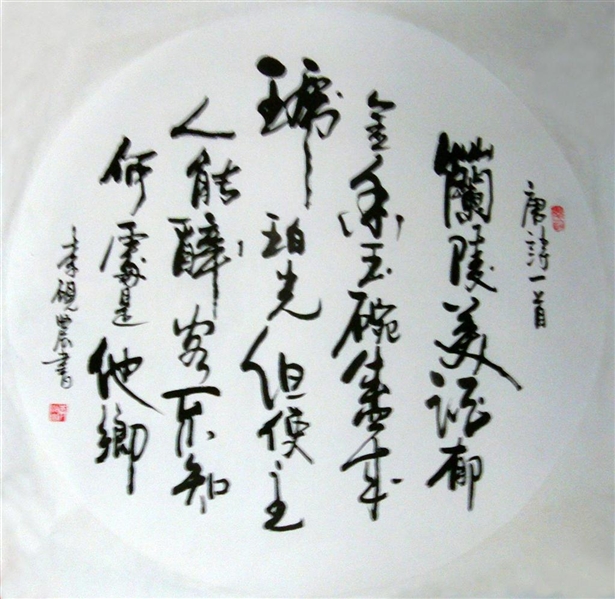 唐詩一首
蘭陵美酒郁
金香玉碗盛来
琥珀光但使主
人能醉客不知
何處是他鄉
李硯農書